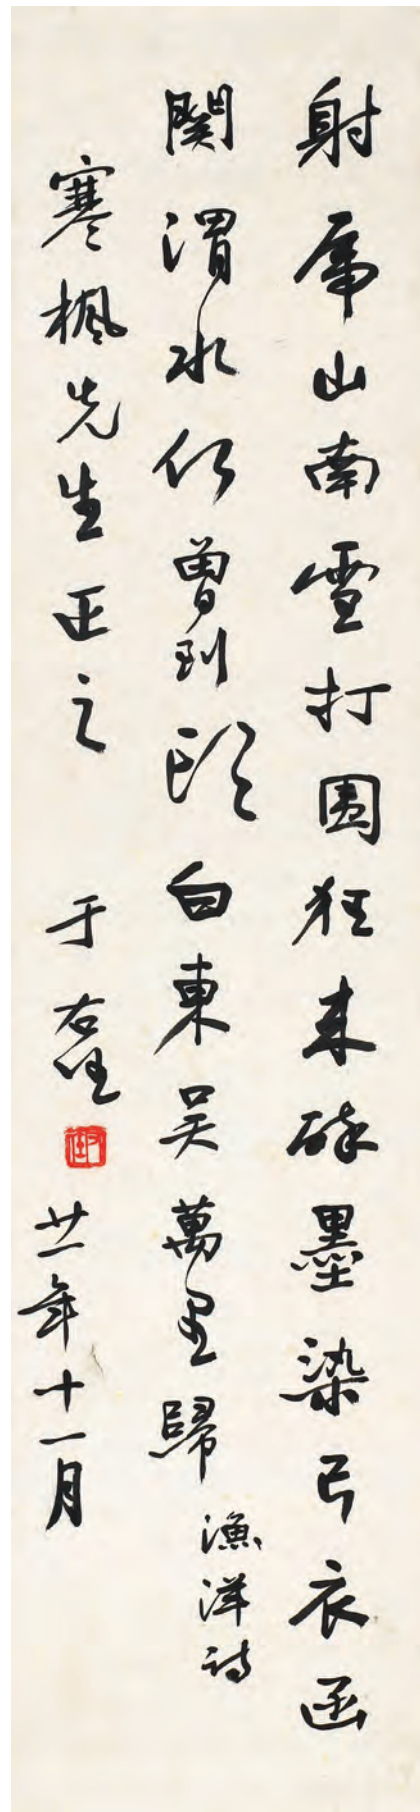 射虎山南雪打圍狂來醉墨染弓衣函
關渭水仍曾到頭白東吳萬里歸 漁洋詩
寒楓先生正之 于右任 廿一年十一月